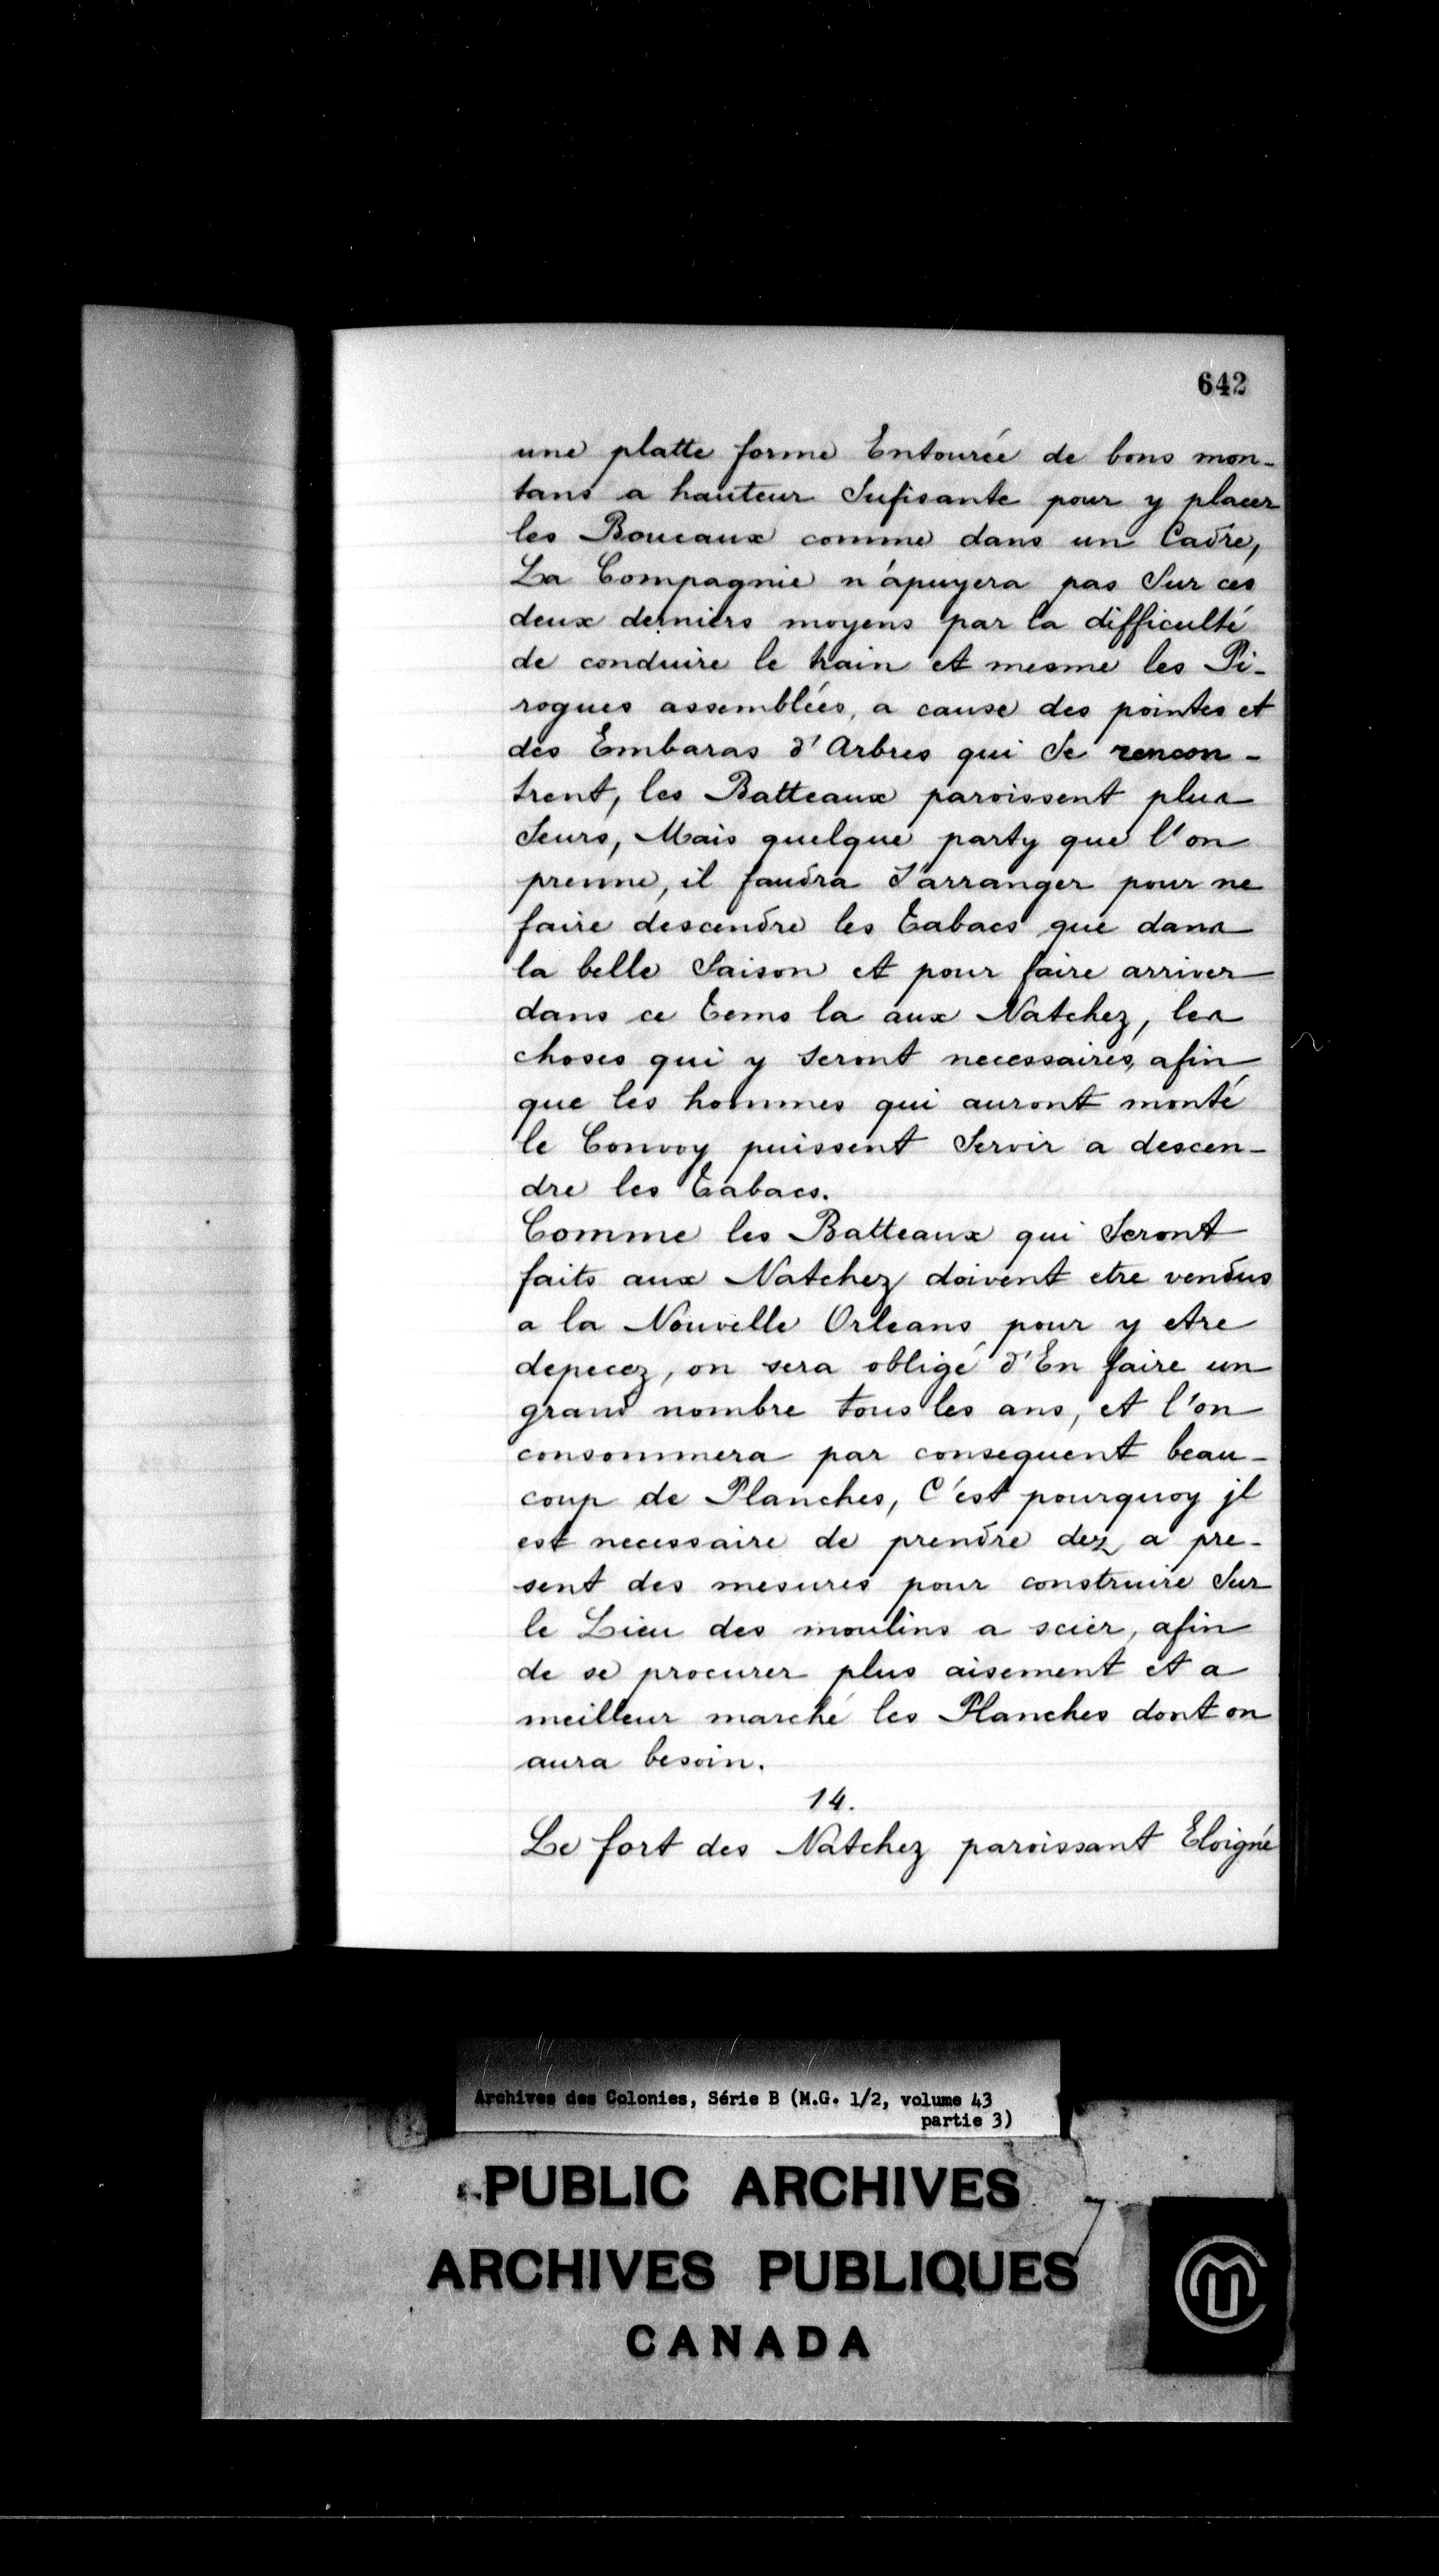 642
une platte forme Entourée de bons mon-
tans a hauteur Sufisante pour y placer
les Boucaux comme dans un Cadre,
La Compagnie n'apuyera pas Sur ces
deux derniers moyens par la difficulté
de conduire le train et mesme les Pi-
rogues assemblées, a cause des pointes et
des Embaras d'Arbres qui Se rencon-
trent, les Batteaux paroissent plus
Seurs, Mais quelque party que l'on
prenne, il faudra S'arranger pour ne
faire descendre les Tabacs que dans
la belle Saison et pour faire arriver
dans ce Tems la aux Natchez, les
choses qui y Seront necessaires, afin
que les hommes qui auront monté
le Convoy puissent Servir a descen-
dre les Tabacs.
Comme les Batteaux qui Seront
faits aux Natchez doivent etre vendus
a la Nouvelle Orleans pour y etre
depecez, on sera obligé d'En faire un
grand nombre tous les ans, et l'on
consommera par consequent beau-
coup de Planches, C'est pourquoy jl
est necessaire de prendre dez a pre-
sent des mesures pour construire Sur
le Lieu des moulins a scier, afin
de se procurer plus aisement et a
meilleur marché les Planches dont on
aura besoin.
14.
Le fort des Natchez paroissant Eloigné
Archives des Colonies, Série B (M.G. 1/2, volume 43
partie 3)
PUBLIC ARCHIVES
ARCHIVES PUBLIQUES
CANADA